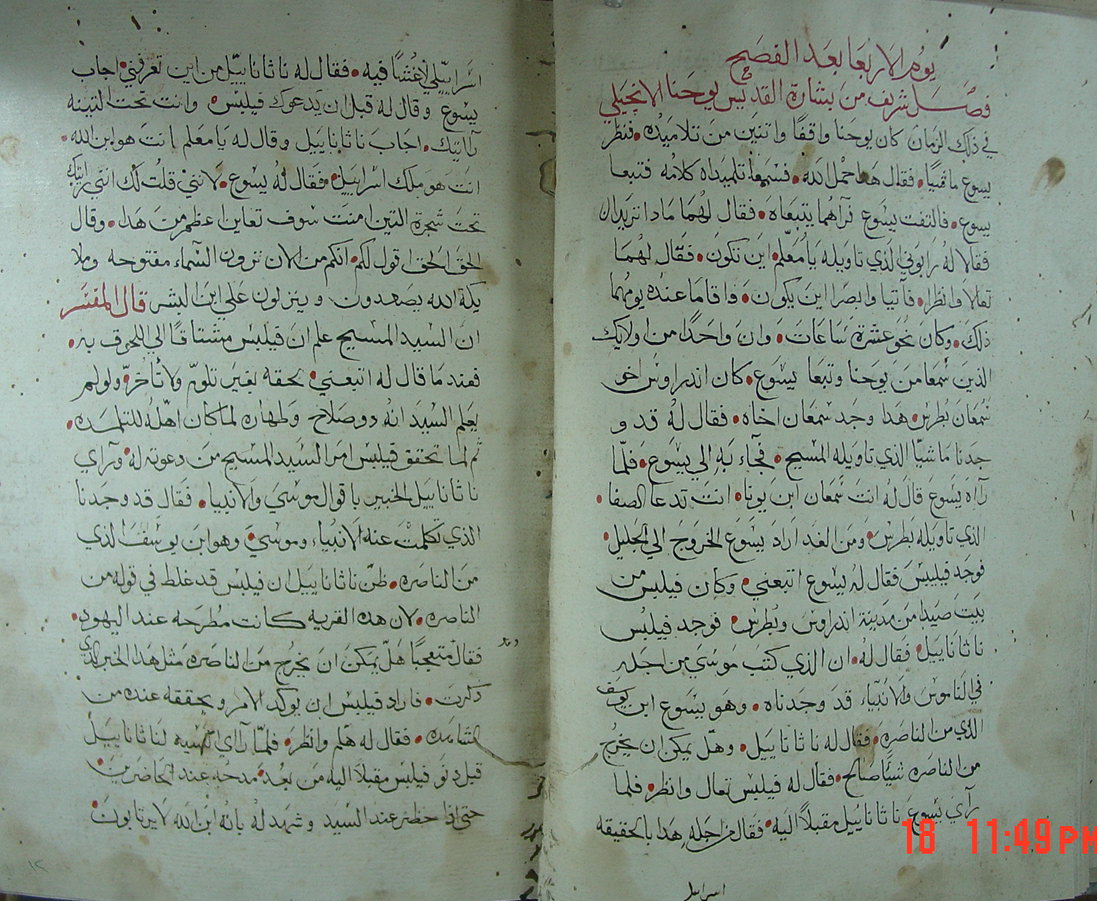 يوم الاربعا بعد الفصح
فصل شريف من بشارة القديس يوحنا الانجيلي
في ذلك الزمان كان يوحنا واقفًا واتنين من تلاميده • فنظر
يسوع ماشيًا • فقال هدا حمل الله • فسمعا تلميداه كلامه فتبعا
يسوع • فالتفت يسوع فرآهما يتبعاه • فقال لهما مادا تريدان
فقالا له رابوني الذي تاويله يا معلم • اين تكون • فقال لهما
تعالا وانظرا • فآتيا وابصرا اين يكون • واقاما عنده يومهما
ذلك • وكان نحو عشرة ساعات • وان واحدًا من اولايك
الذين سمعا من يوحنا وتبعا يسوع • كان اندراوس اخو
سمعان بطرس • هدا وجد سمعان اخاه • فقال له قد و
جدنا ماشيّا الذي تاويله المسيح • فجاء به الي يسوع • فلمّا
رآه يسوع قال له انت سمعان ابن يونا • انت تدعا الصفا •
الدي تاويله بطرس • ومن الغد اراد يسوع الخروج الي الجليل •
فوجد فيلبس فقال له يسوع اتبعني • وكان فيلبس من
بيت صيدا من مدينة اندراوس وبطرس • فوجد فيلبس
ناثاناييل • فقال له • ان الذي كتب موسي من اجله
في الناموس والانبياء قد وجدناه • وهو يسوع ابن يوسف
الذي من الناصره • فقال له ناثاناييل • وهل يمكن ان يخرج
من الناصره شيًا صالح • فقال له فيلبس تعال وانظر • فلما
رآي يسوع ناثاناييل مقبلاً اليه • فقال من اجله هدا بالحقيقه
اسراييل
اسراييلي لا غش فيه • فقال له ناثاناييل من اين تعرفني • اجاب
يسوع وقال له قبل ان يدعوك فيلبس وانت تحت التينه
رآيتك • اجاب ناثاناييل وقال له يا معلم انت هو ابن الله •
انت هو ملك اسراييل • فقال له يسوع • لانني قلت لك انني رايتك
تحت شجرة التين امنت سوف تعاين اعظم من هدا • وقال
الحق الحق اقول لكم • انكم من الان ترون السماء مفتوحه وملا
يكة الله يصعدون وينزلون علي ابن البشر • قال المفسر
ان السيد المسيح علم ان فيلبس مشتاقًا الي اللحوق به •
فعند ما قال له اتبعني • لحقه بغير تلوّم ولا تأخر • ولو لم
يعلم السيد انه دو صلاح وطهاره لما كان اهله للتلمده •
ثم لما تحقق فيلبس امر السيد المسيح من دعوته له • ورآي
ناثاناييل الخبير باقوال موسي والانبياء • فقال قد وجدنا
الدي تكلمت عنه الانبياء وموسي • وهو ابن يوسف الذي
من الناصره • ظنّ ناثاناييل ان فيلبس قد غلط في قوله من
الناصره • لان هده القريه كانت مطرحه عند اليهود •
فقال متعجبًا هل يمكن ان يخرج من الناصره مثل هدا الخير الذي
دكرت • فاراد فيلبس ان يوكد الامر ويحققه عنده من
المشاهده • فقال له هلم وانظر • فلمّا رآي المسيح لناثاناييل
قبل دنو فيلبس مقبلاً اليه من بعد • مدحه عند الحاضرين •
حتى ادا حظر عند السيد وشهد له بانه ابن الله لا يرتابون •
١٢
18 11:49 PM